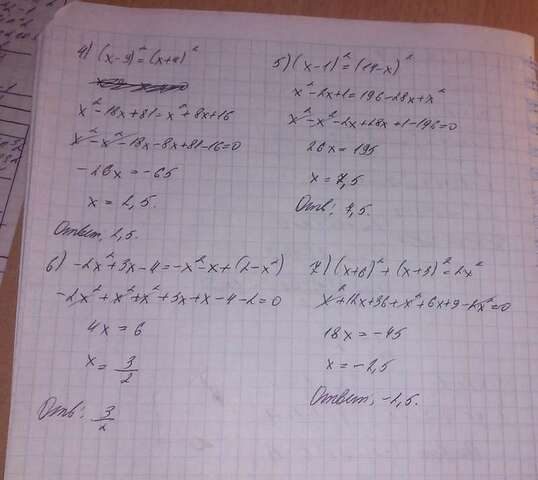 4) (x-9)²=(x+4)²
x²-18x+81=x²+8x+16
x²-x²-18x-8x+81-16=0
-26x=-65
x=2,5.
Ответ: 2,5.
5) (x-1)²=(14-x)²
x²-2x+1=196-28x+x²
x²-x²-2x+28x+1-196=0
26x=195
x=7,5
Отв: 7,5.
6) -2x²+3x-4=-x²-x+(2-x²)
-2x²+x²+x²+3x+x-4-2=0
4x=6
x=3/2
Отв: 3/2
7) (x+6)²+(x+3)²=2x²
x²+12x+36+x²+6x+9-2x²=0
18x=-45
x=-2,5
Ответ: -2,5.